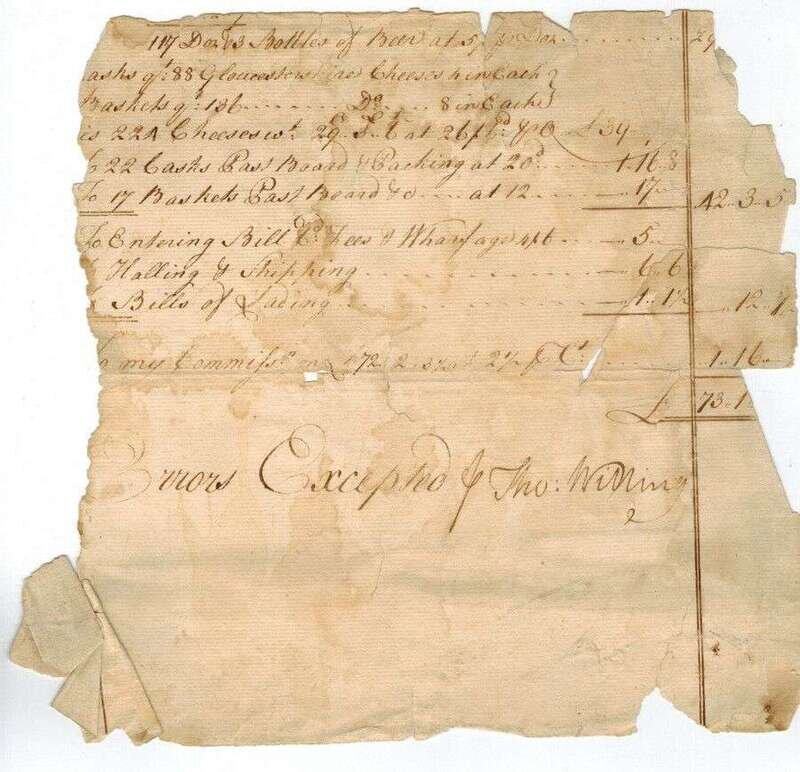 117 Doz 3 Bottles of Beer at 5/ p Doz 29
asks qt 88 Gloucestershire Cheeses 4 in Each
Baskets qt 136 Do 8 in Each
is 224 Cheeses wt at 26/ £39
To 22 Casks Past Board & Packing at 20d 1 16 8
To 17 Baskets Past Board &c at 12 17 42 3 5
To Entering Bill Fees & Wharfage 4/6 5
Halling & Shipping 6 6
Bills of Lading 1 1/2 12 7
my Commissn on 72 2 at 2½ p Ct 1 16
£ 73 1
Errors Excepted p Tho: Willing